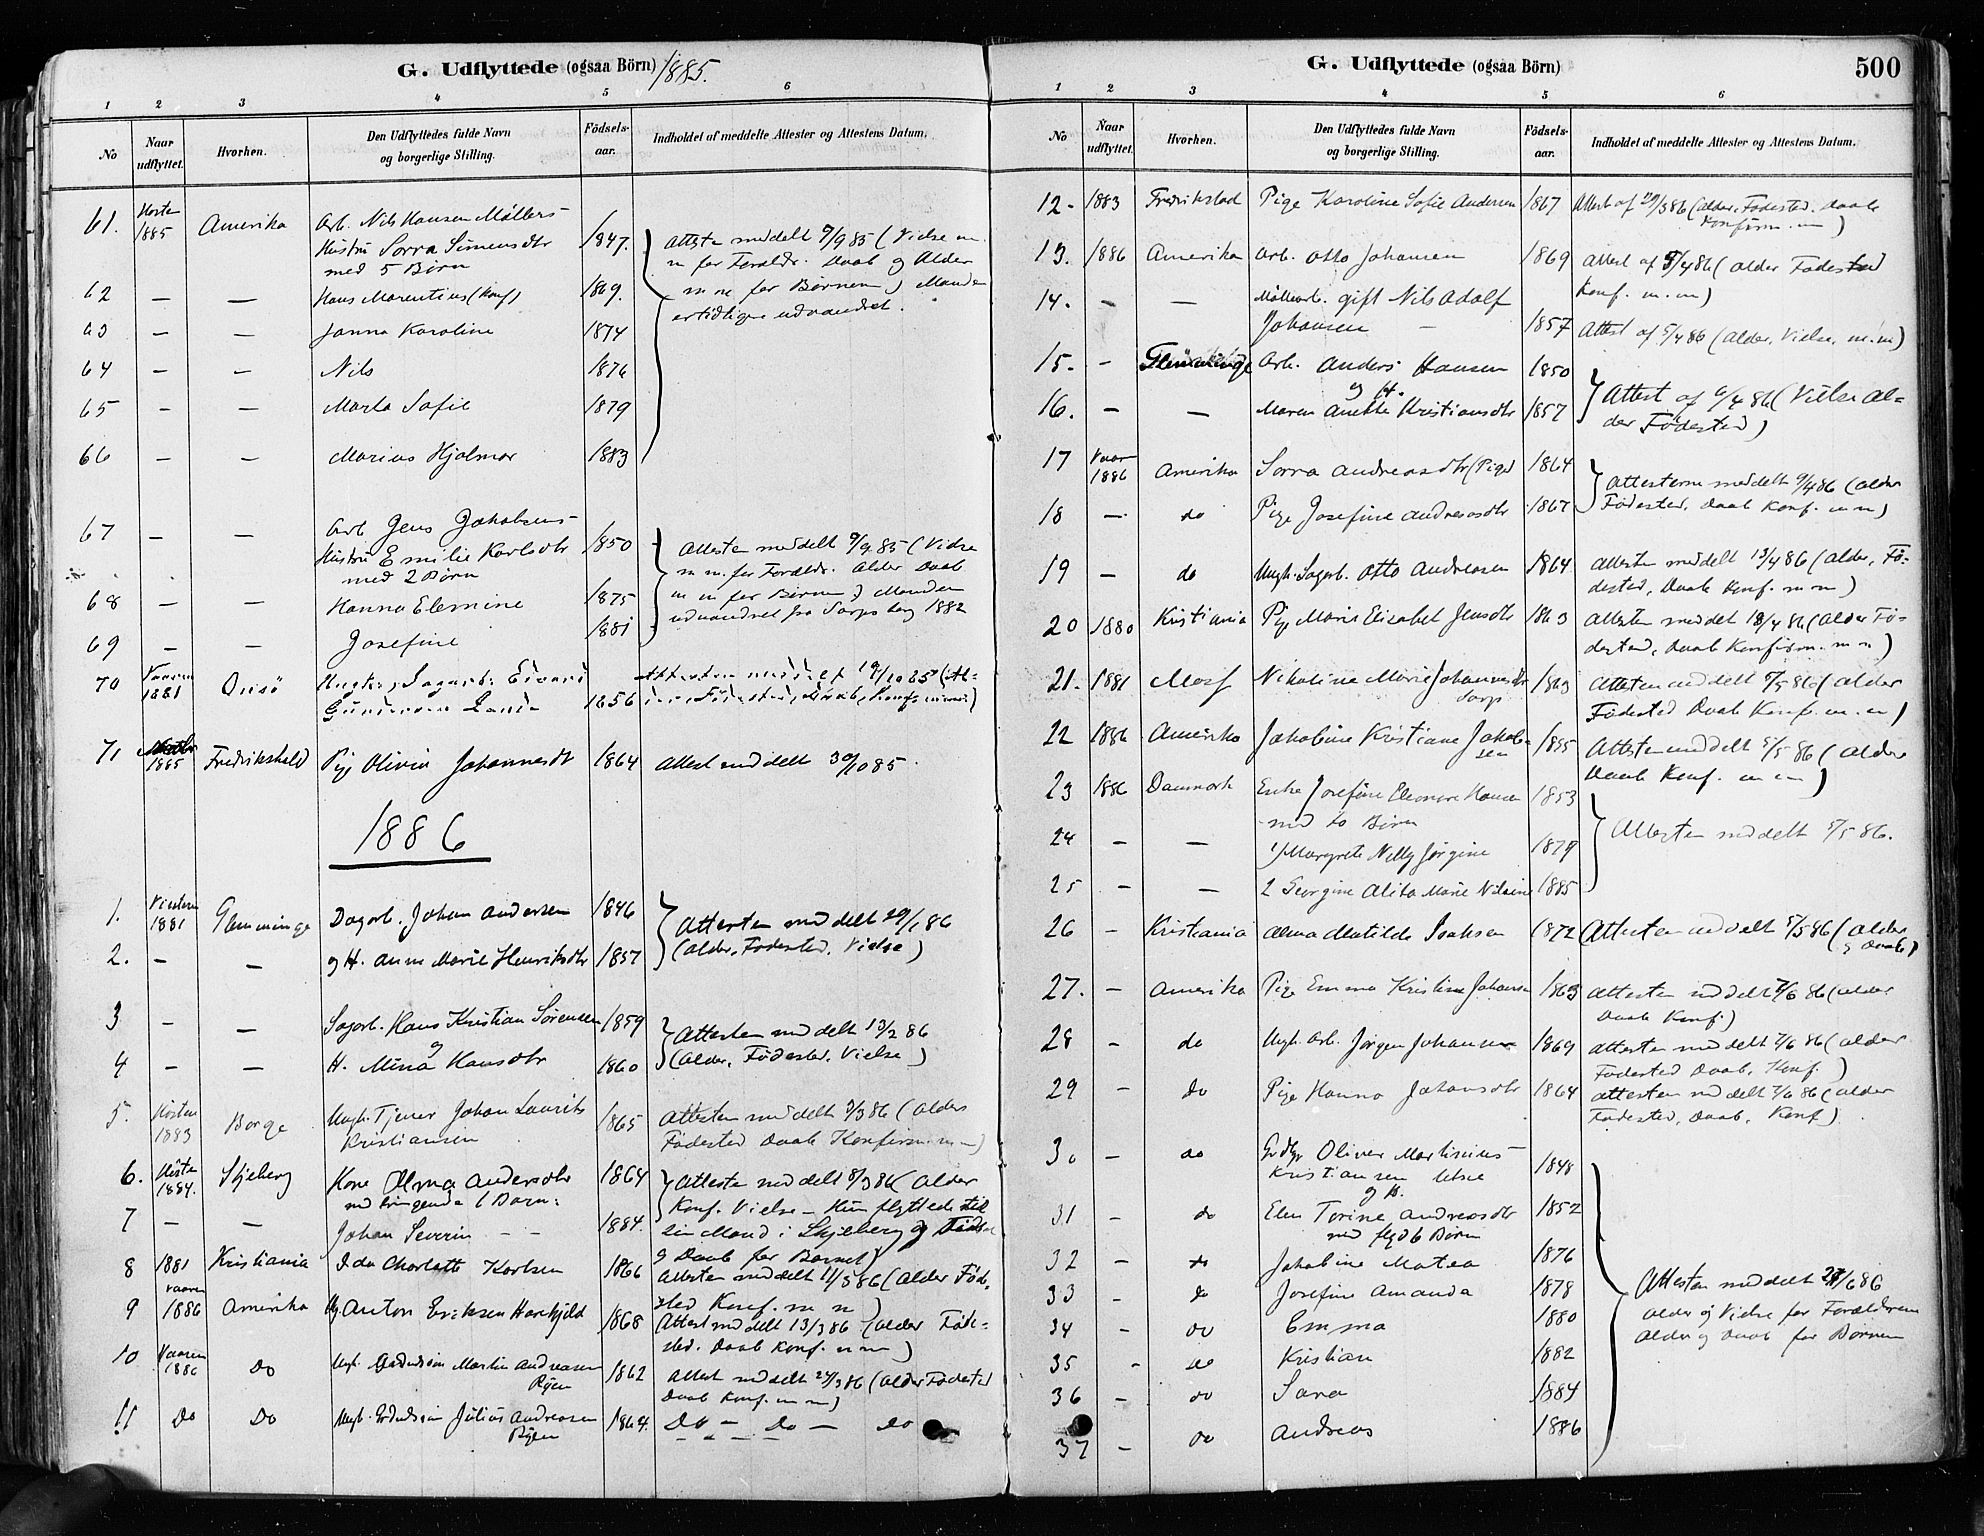 G. Udflyttede (ogsaa Börn) 1885.
1 2 3 4 5 6
No
Naar udflyttet.
Hvorhen.
Den Udflyttedes fulde Navn og borgerlige Stilling.
Födsels-aar.
Indholdet af meddelte Attester og Attestens Datum.
61. Hösten 1885 Amerika Arb. Nils Hansen Möllers
Hustru Sorra Simensdtr 1847. Attesten meddelt 9/9 85 (Vielse m.
med 5 Börn m for Foraldr. Daab og Alder
62 — — Hans Marentius (konf) 1869. m m for Börnene) Manden
er tidligere udvandret.
63 — — Janna Karoline 1874
64 — — Nils 1876
65 — — Marta Sofie 1879
66 — — Marius Hjalmar 1883
67 — — Arb Jens Jakobsens
Hustru Emilie Karlsdtr 1850 Attesten meddelt 9/9 85 (Vielse
med 2 Börn m m. for Foraldr. Alder Daab
68 — — Hanna Elemine 1875 m m for Börnene) Manden
udvandret fra Sarpsborg 1882
69 — — Josefine 1881
70 Vaaren 1881 Onsö Ungk. Sagarb. Edvard
Gundersen 1856
71 1885 Fredrikshald Pige Olivia Johannesdtr 1864 Attest meddelt 30/10 85.
1886
1. Vinteren 1881 Glemminge Dagarb. Johan Andersen 1846 Attesten meddelt 29/1 86
2. — — og H. Anne Marie Henriksdtr 1857 (Alder, Födested, Vielse)
3 — — Sagarb. Hans Kristian Sörensen 1859 Attesten meddelt 13/2 86
og
4 — — H. Mina Hansdtr 1860 (Alder, Födested, Vielse)
5. Hösten 1883 Borge Ungk. Tjener Johan Laurits 1865 Attesten meddelt 3/3 86 (Alder
Kristiansen Födested Daab Konfirm. m m)
6. Höste 1884. Skjeberg Kone Olma Andersdtr 1864 Attesten meddelt 8/3 86 (Alder
medbringende 1 Barn: Konf. Vielse — Hun flyttede til
7 — — Johan Severin — — 1884. sin Mand i Skjeberg og Födsel
og Daab for Barnet)
8 1881 Kristiania Ida Charlotte Karlsen 1866 Attesten meddelt 11/3 86 (Alder Föde-
sted Konf. m m)
9 Vaaren 1886 Amerika Anton Eriksen Harekjöld 1868 Attest meddelt 13/3 86 (Alder Föde-
sted. Daab Konf. m m)
10 Vaaren 1886 Do Ungk. Martin Andreasen 1862 Attest meddelt 24/3 86 (Alder Födested
Ryen Daab Konf. m m)
11 Do Do Ungk. Julius Andreasen 1864. Do — Do — Do
Ryen
G. Udflyttede (ogsaa Börn)
500
1 2 3 4 5 6
No
Naar udflyttet.
Hvorhen.
Den Udflyttedes fulde Navn og borgerlige Stilling.
Födsels-aar.
Indholdet af meddelte Attester og Attestens Datum.
12. 1883 Fredrikstad Pige Karoline Sofie Andersen 1867 Attest af 29/3 86 (Alder, Födested. Daab
Konfirm. m)
13. 1886 Amerika Arb. Otto Johansen 1869 Attest af 5/4 86 (Alder Födested
Konf. m. m)
14. — — Möllearb. gift Nils Adolf
Johansen — 1857 Attest af 5/4 86 (Alder, Vielse, m. m)
15. — Glemminge Arb. Anders Hansen 1850
og H. Attest af 6/4 86 (Vielse Al-
16. — — Maren Anette Kristiansdtr 1857 der Födested)
17 Vaar 1886 Amerika Sorra Andreasdtr (Pige) 1864 Attesterne meddelt 9/4 86 (Alder
18 — do Pige Josefine Andreasdtr 1867 Födested, Daab Konf. m m)
19 — do Ungk. Sagarb. Otto Andreasen 1864. Attesten meddelt 13/4 86 (Alder, Fö-
dested, Daab Konf. m m)
20 1880 Kristiania Pige Marie Elisabet Jensdtr 1863 Attesten meddelt 18/4 86 (Alder Fö-
dested, Daab Konfirm. m m)
21. 1881 Moss Nikoline Marie Johannesdtr 1863 Attesten meddelt 5/5 86 (Alder
Sarp Födested Daab Konf. m. m)
22 1886 Amerika Jakobine Kristiane Jakob- 1855 Attesten meddelt 5/5 86 (Alder
sen Daab Konf. m m)
23 1886 Danmark Enke Josefine Eleonore Hansen 1853
med to Börn Attesten meddelt 5/5 86.
24 — — 1) Margrete Nelly Jörgine 1879
25 — — 2 Georgine Alita Marie Nilsine 1885
26 — Kristiania Alma Matilde Isaksen 1872 Attesten meddelt 5/5 86 (Alder
og Daab)
27. — Amerika Pige Emma Kristine Johansen 1863 Attesten meddelt 7/6 86 (Alder
Daab Konf.)
28 — do Ungk. Arb. Jörgen Johansen 1869 Attesten meddelt 7/6 86 (Alder
Födested Daab, Konf.)
29 — Do Pige Hanna Johansdtr 1864 Attesten meddelt 7/6 86 (Alder
Födested, Daab, Konf.)
30 — do Oliver Martinius
Kristiansen 1848
og H.
31 — do Elen Torine Andreasdtr 1852
med flgd 6 Börn
32 — do Jakobine Matea 1876
33 — do Josefine Amanda 1878 Attesten meddelt 28/6 86
34 — do Emma 1880 Alder og Vielse for Forældrene
Alder og Daab for Börnene
35 — do Kristian 1882
36 — do Sara 1884
37 — do Andreas 1886